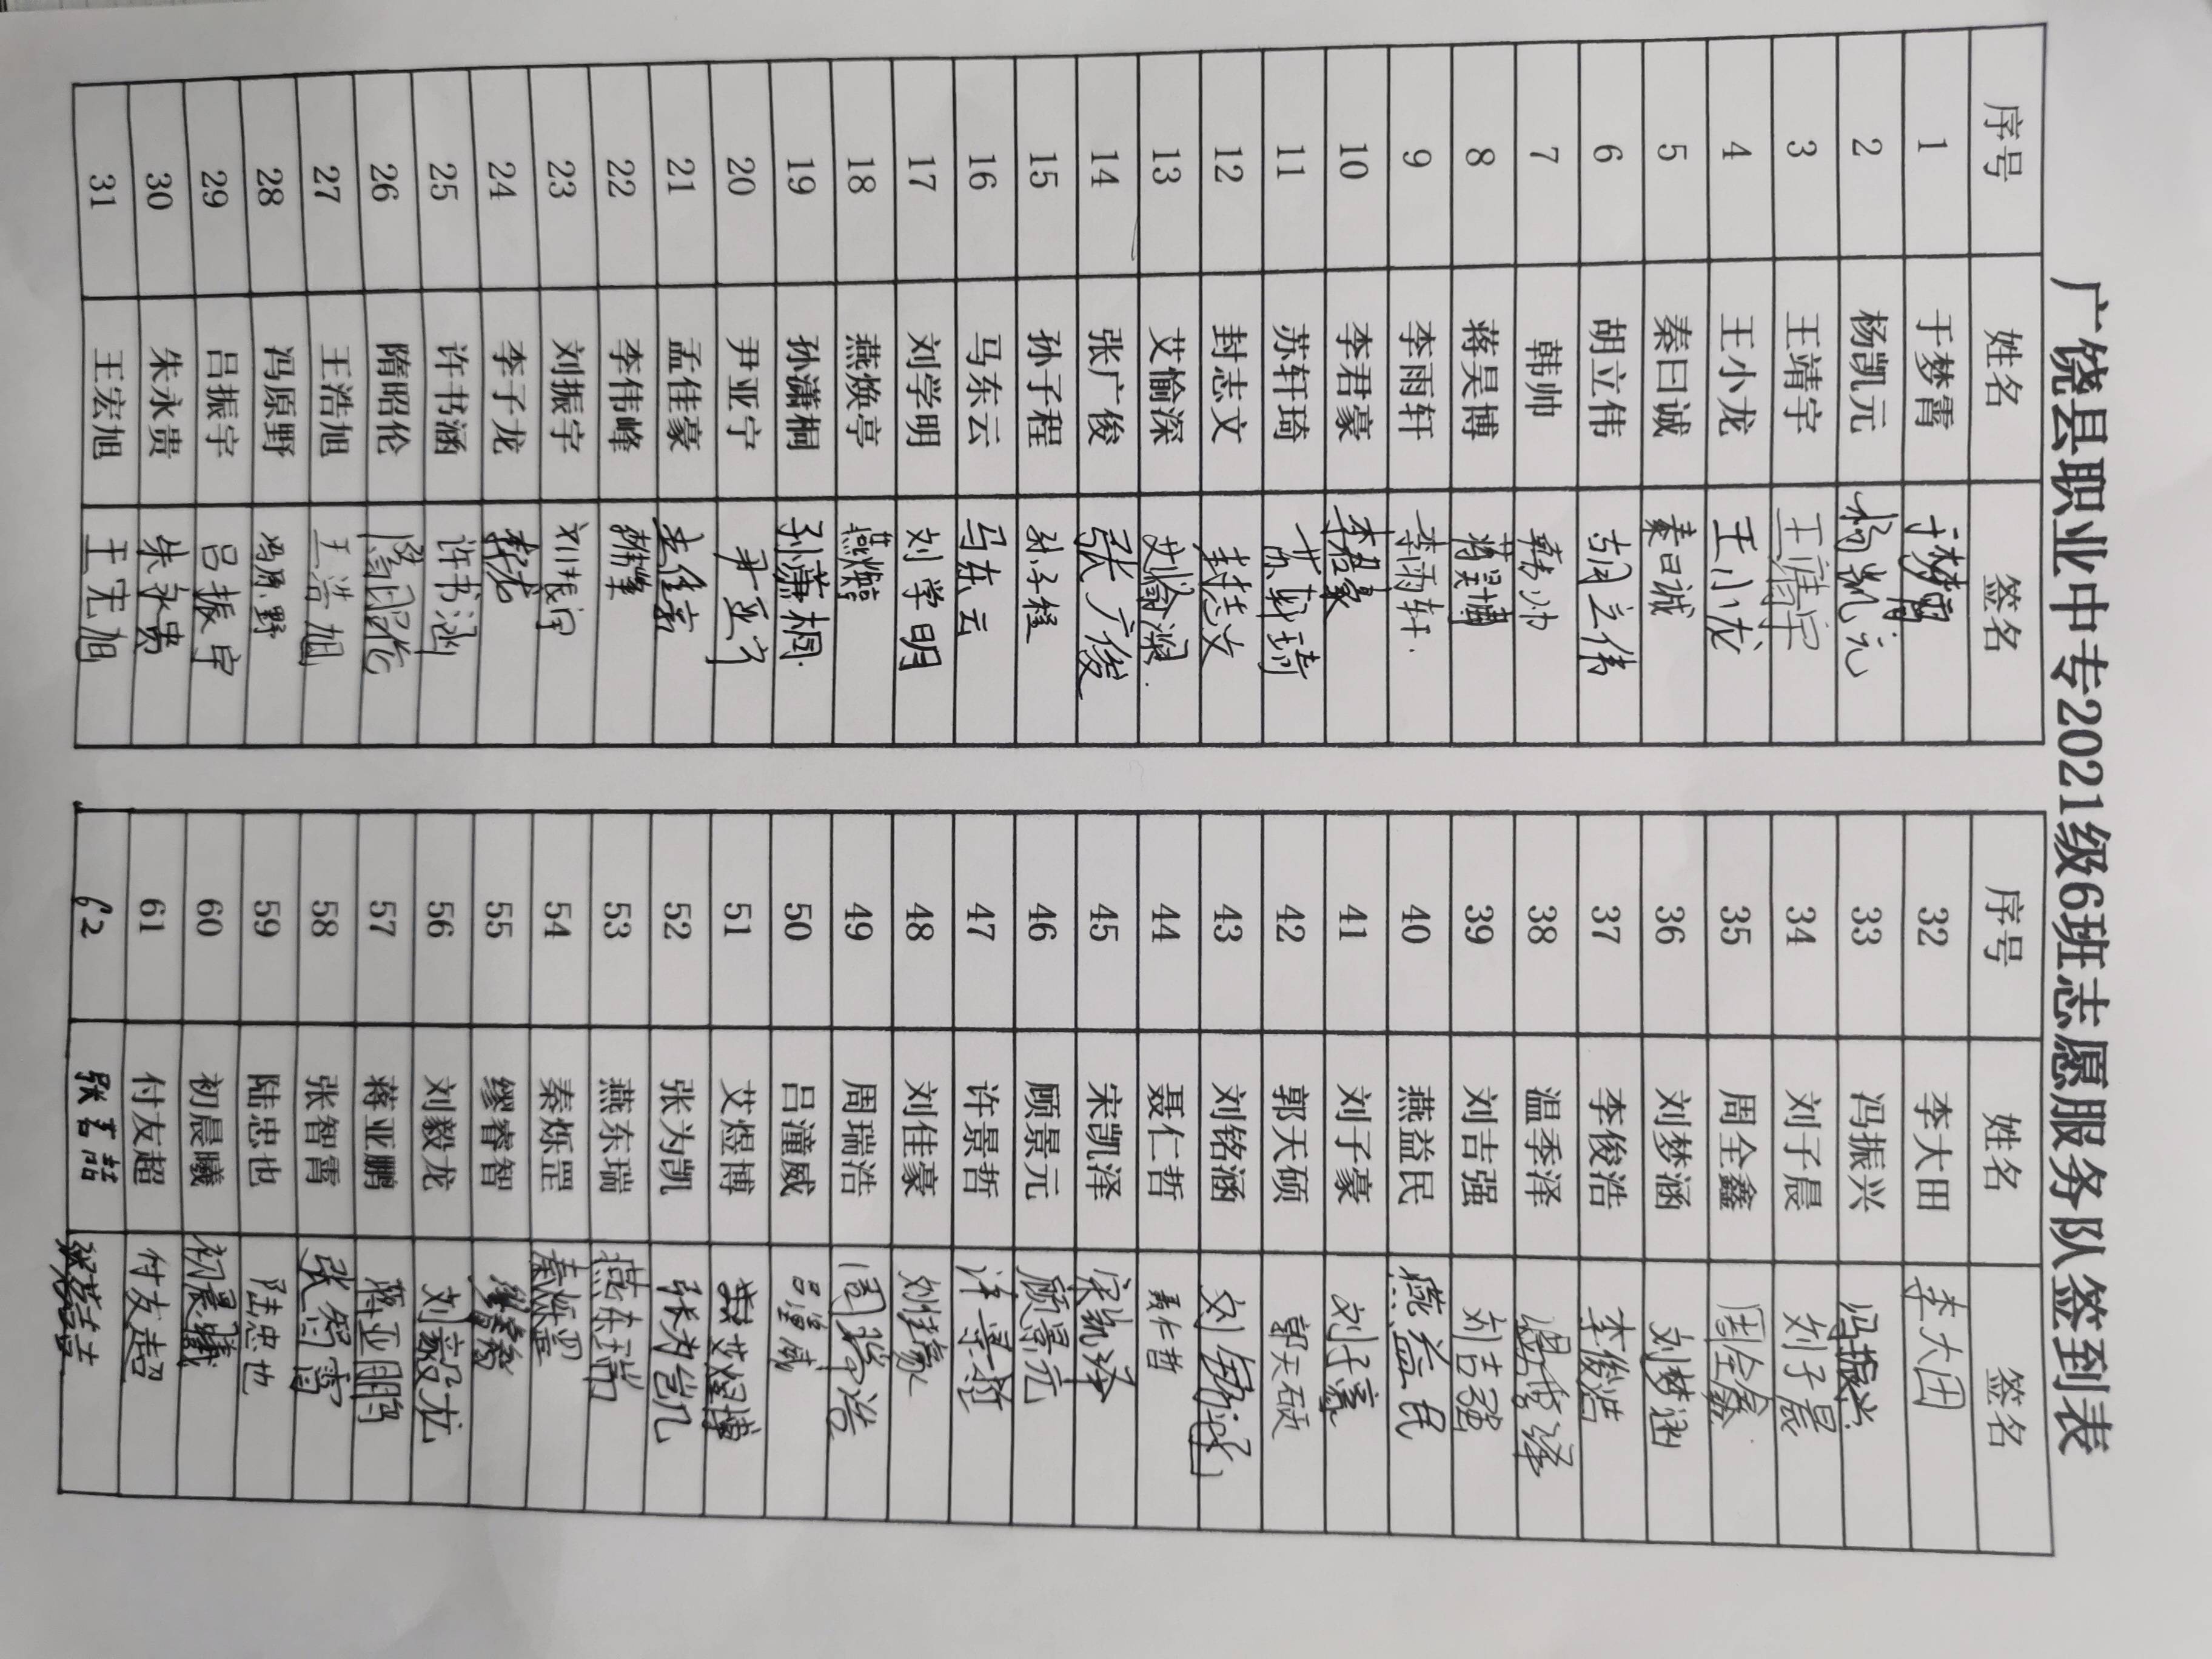 广饶县职业中专2021级6班志愿服务队签到表
序号 姓名 签名
1 于梦霄 于梦霄
2 杨凯元 杨凯元
3 王靖宇 王靖宇
4 王小龙 王小龙
5 秦日诚 秦日诚
6 胡立伟 胡立伟
7 韩帅 韩帅
8 蒋昊博 蒋昊博
9 李雨轩 李雨轩
10 李君豪 李君豪
11 苏轩琦 苏轩琦
12 封志文 封志文
13 艾愉深 艾愉深
14 张广俊 张广俊
15 孙子程 孙子程
16 马东云 马东云
17 刘学明 刘学明
18 燕焕亭 燕焕亭
19 孙潇桐 孙潇桐
20 尹亚宁 尹亚宁
21 孟佳豪 孟佳豪
22 李伟峰
23 刘振宇 刘振宇
24 李子龙 李子龙
25 许书涵 许书涵
26 隋昭伦 隋昭伦
27 王浩旭 王浩旭
28 冯原野 冯原野
29 吕振宇 吕振宇
30 朱永贵 朱永贵
31 王宏旭 王宏旭
序号 姓名 签名
32 李大田 李大田
33 冯振兴 冯振兴
34 刘子晨 刘子晨
35 周全鑫 周全鑫
36 刘梦涵 刘梦涵
37 李俊浩 李俊浩
38 温季泽 温季泽
39 刘吉强 刘吉强
40 燕益民 燕益民
41 刘子豪 刘子豪
42 郭天硕 郭天硕
43 刘铭涵 刘铭涵
44 聂仁哲 聂仁哲
45 宋凯泽 宋凯泽
46 顾景元 顾景元
47 许景哲 许景哲
48 刘佳豪 刘佳豪
49 周瑞浩 周瑞浩
50 吕潼威 吕潼威
51 艾煜博 艾煜博
52 张为凯 张为凯
53 燕东瑞 燕东瑞
54 秦烁罡 秦烁罡
55 缪睿智
56 刘毅龙 刘毅龙
57 蒋亚鹏 蒋亚鹏
58 张智霄 张智霄
59 陆忠也 陆忠也
60 初晨曦 初晨曦
61 付友超 付友超
62 张若喆 张若喆